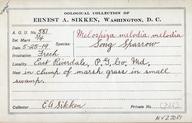 OOLOGICAL COLLECTION OF
ERNEST A. SIKKEN, WASHINGTON, D. C.
A. O. U. 581 Melospiza melodia melodia
Set Mark 1/4 Song Sparrow
Date 5-25-19
Incubation Fresh
Locality East Riverdale, P. G. Co. Md.
Nest in clump of marsh grass in small
swamp.
Collector E A Sikken Private No.